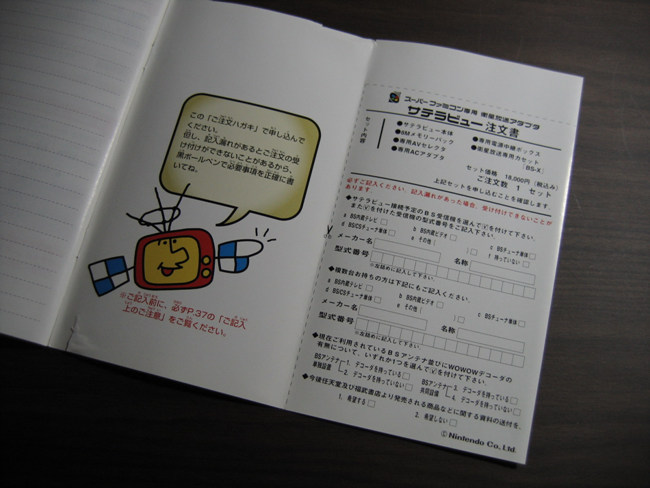 この「ご注文ハガキ」で申し込んで
ください。
但し、記入漏れがあるとご注文の受
け付けができないことがあるから、
黒ボールペンで必要事項を正確に書
いてね。
※ご記入前に、必ずP.37の「ご記入
上のご注意」をご覧ください。
スーパーファミコン専用 衛星放送アダプタ
サテラビュー 注文書
セット内容
●サテラビュー本体
●8Mメモリーパック
●専用AVセレクタ
●専用ACアダプタ
●専用電源中継ボックス
●衛星放送専用カセット
(BS-X)
セット価格 18,000円(税込み)
ご注文数 1 セット
上記セットを申し込むことを確認します
必ずご記入ください。記入漏れがあった場合、受け付けできないことが
あります
◆サテラビュー接続予定のBS受信機を選んで□を付けてください。
また□を付けた受信機の型式番号をご記入下さい。
a BS内蔵テレビ□ b BS内蔵ビデオ□ c BSチューナ単体□
d BSCSチューナ単体□ e その他( )□ f 持っていない□
メーカー名 名称
型式番号
※左詰めに記入して下さい
◆複数台お持ちの方は下記にもご記入ください。
a BS内蔵テレビ□ b BS内蔵ビデオ□ c BSチューナ単体□
d BSCSチューナ単体□ e その他( )□
メーカー名 名称
型式番号
※左詰めに記入して下さい
◆現在ご利用されているBSアンテナ並びにWOWOWデコーダの
有無について、いずれか1つを選んで□を付けて下さい。
BSアンテナ 単独設置 1. デコーダを持っている□ 2. デコーダを持っていない□
BSアンテナ 共同設備 3. デコーダを持っている□ 4. デコーダを持っていない□
◆今後任天堂及び福武書店より発売される商品などに関する資料の送付を、
1. 希望する□ 2. 希望しない□
© Nintendo Co., Ltd.